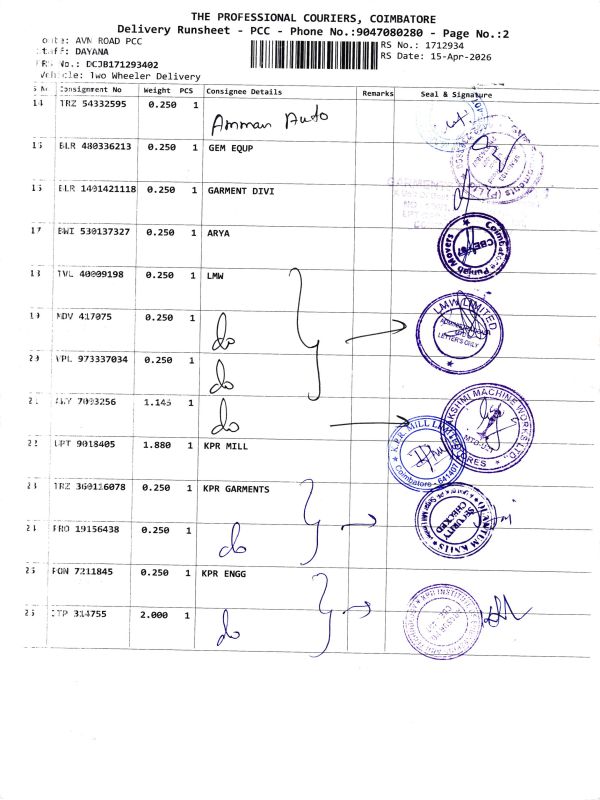 THE PROFESSIONAL COURIERS, COIMBATORE
Delivery Runsheet - PCC - Phone No.:9047080280 - Page No.:2
AVN ROAD PCC RS No.: 1712934
DAYANA RS Date: 15-Apr-2026
No.: DCJB171293402
Vehicle: Two Wheeler Delivery
Consignment No Weight PCS Consignee Details Remarks Seal & Signature
14 TRZ 54332595 0.250 1
Amman Auto
15 BLR 480336213 0.250 1 GEM EQUP
16 BLR 1401421118 0.250 1 GARMENT DIVI
17 BWI 530137327 0.250 1 ARYA
Coimbatore Punjab Movers
CBE-67
18 TVL 40009198 0.250 1 LMW
19 NDV 417075 0.250 1 do
LMW LIMITED
LETTER'S ONLY
20 VPL 973337034 0.250 1 do
21 1.145 1 do
LAKSHMI MACHINE WORKS LTD.,
STORES
22 UPT 9018405 1.880 1 KPR MILL
K.P.R. MILL LIMITED
Coimbatore - 641407
23 TRZ 360116078 0.250 1 KPR GARMENTS
QUANTUM KNITS
SECURITY
CHECKED
24 PRO 19156438 0.250 1 do
25 PON 7211845 0.250 1 KPR ENGG
26 CTP 314755 2.000 1 do